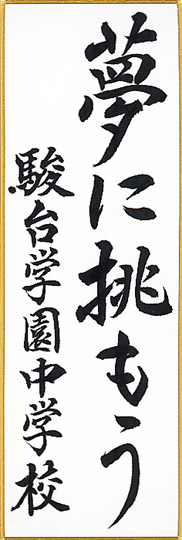 夢に挑もう
駿台学園中学校